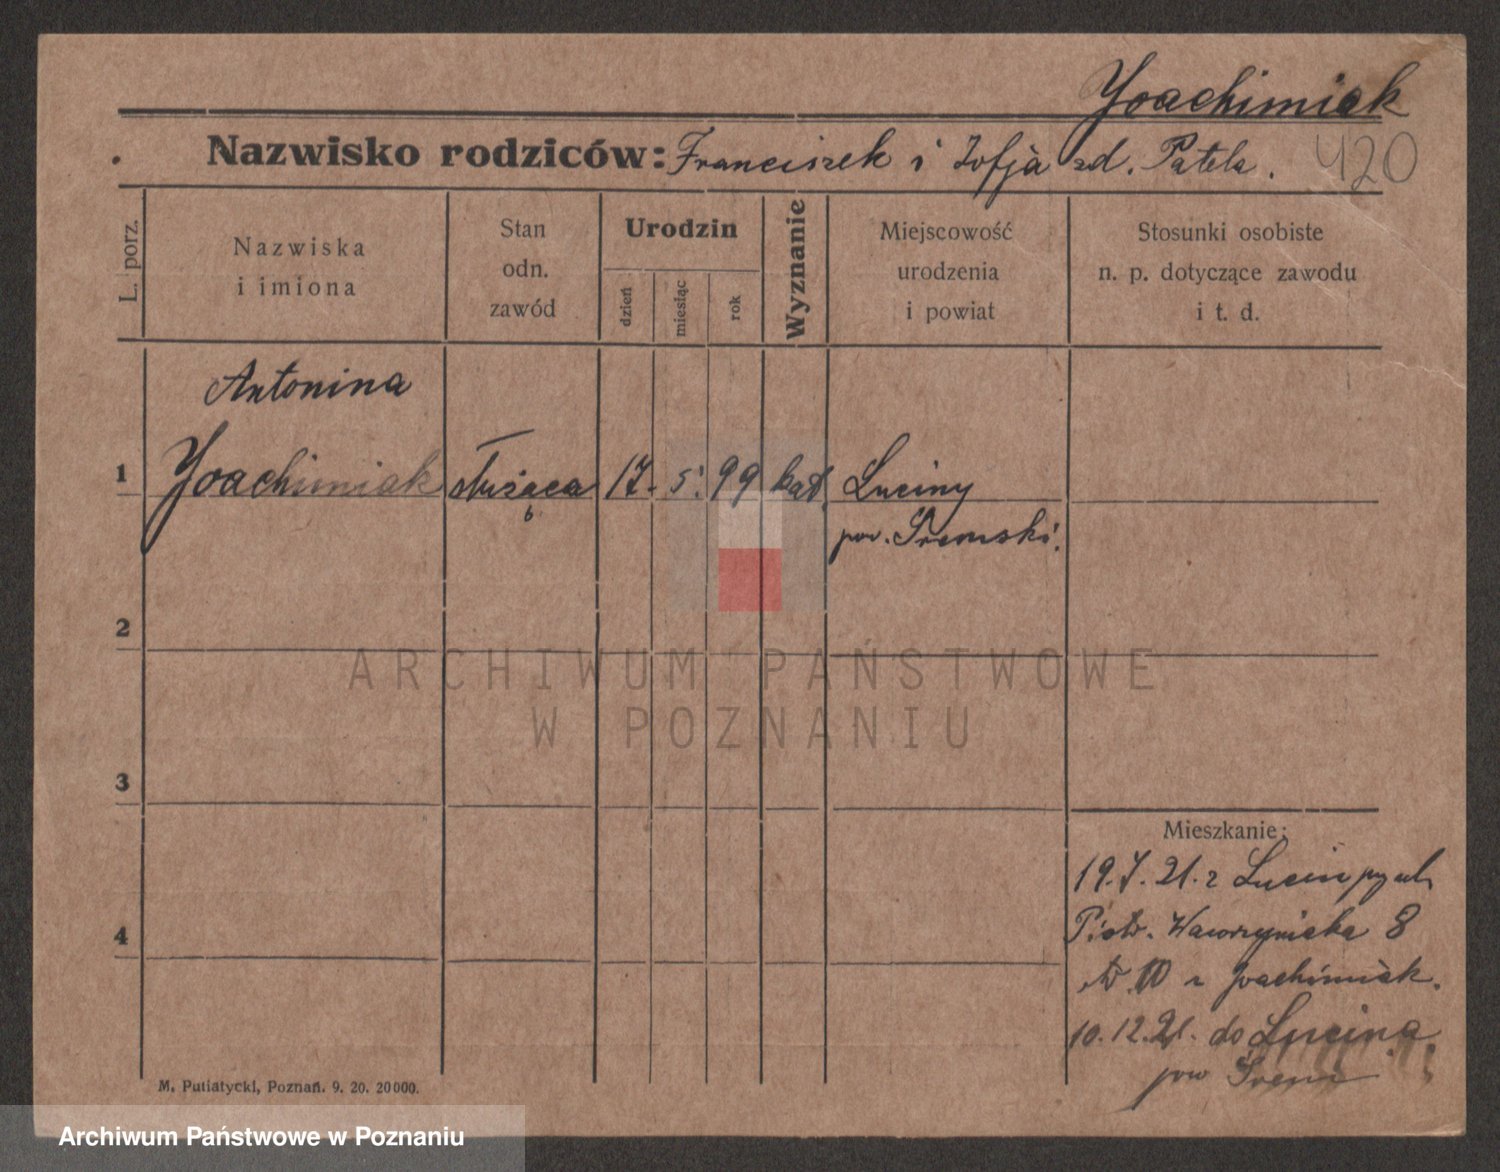 Joachimiak
Nazwisko rodziców: Franciszek i Zofja zd. Patela.
420
L. porz.
Nazwiska
i imiona
Stan
odn.
zawód
Urodzin
dzień
miesiąc
rok
Wyznanie
Miejscowość
urodzenia
i powiat
Stosunki osobiste
n. p. dotyczące zawodu
i t. d.
Antonina
1 Joachimiak służąca 17. 5. 99 kat. Luciny
pow. Śremski.
2
ARCHIWUM PAŃSTWOWE
W POZNANIU
3
Mieszkanie:
19.7.21. z Lucin
Piotr. Wawrzyniaka 8
10 Joachimiak.
4
10.12.21. do Lucina
pow Śrem
M. Putiatycki, Poznań. 9. 20. 20000.
Archiwum Państwowe w Poznaniu